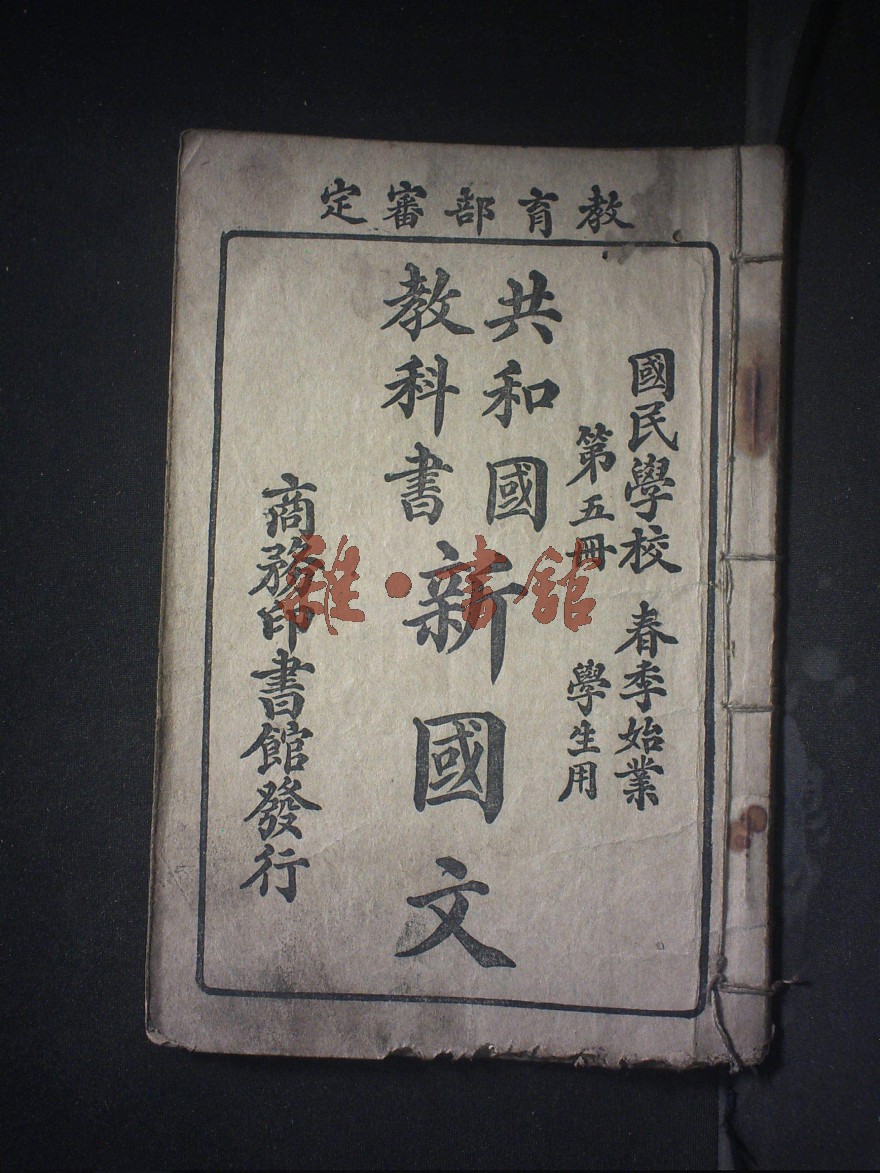 教育部審定
國民學校 春季始業
第五冊 學生用
共和國
教科書
新國文
商務印書館發行
雜·書館